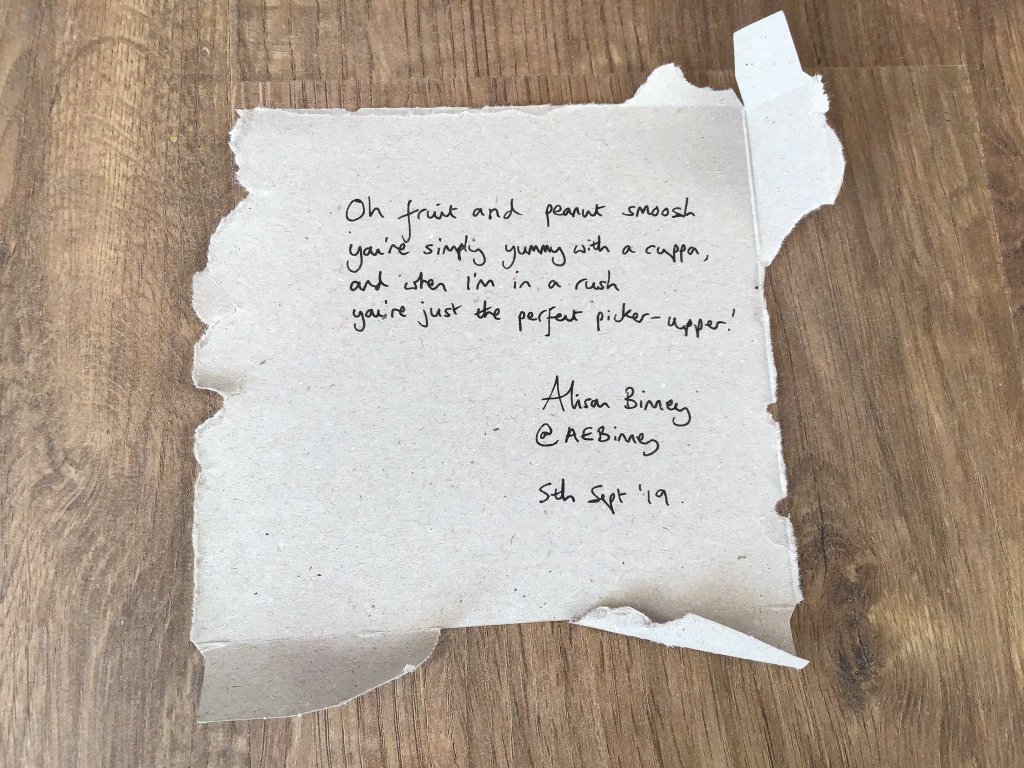 Oh fruit and peanut smoosh
you're simply yummy with a cuppa,
and when I'm in a rush
you're just the perfect picker-upper!
Alison Binney
@AEBinney
5th Sept '19.